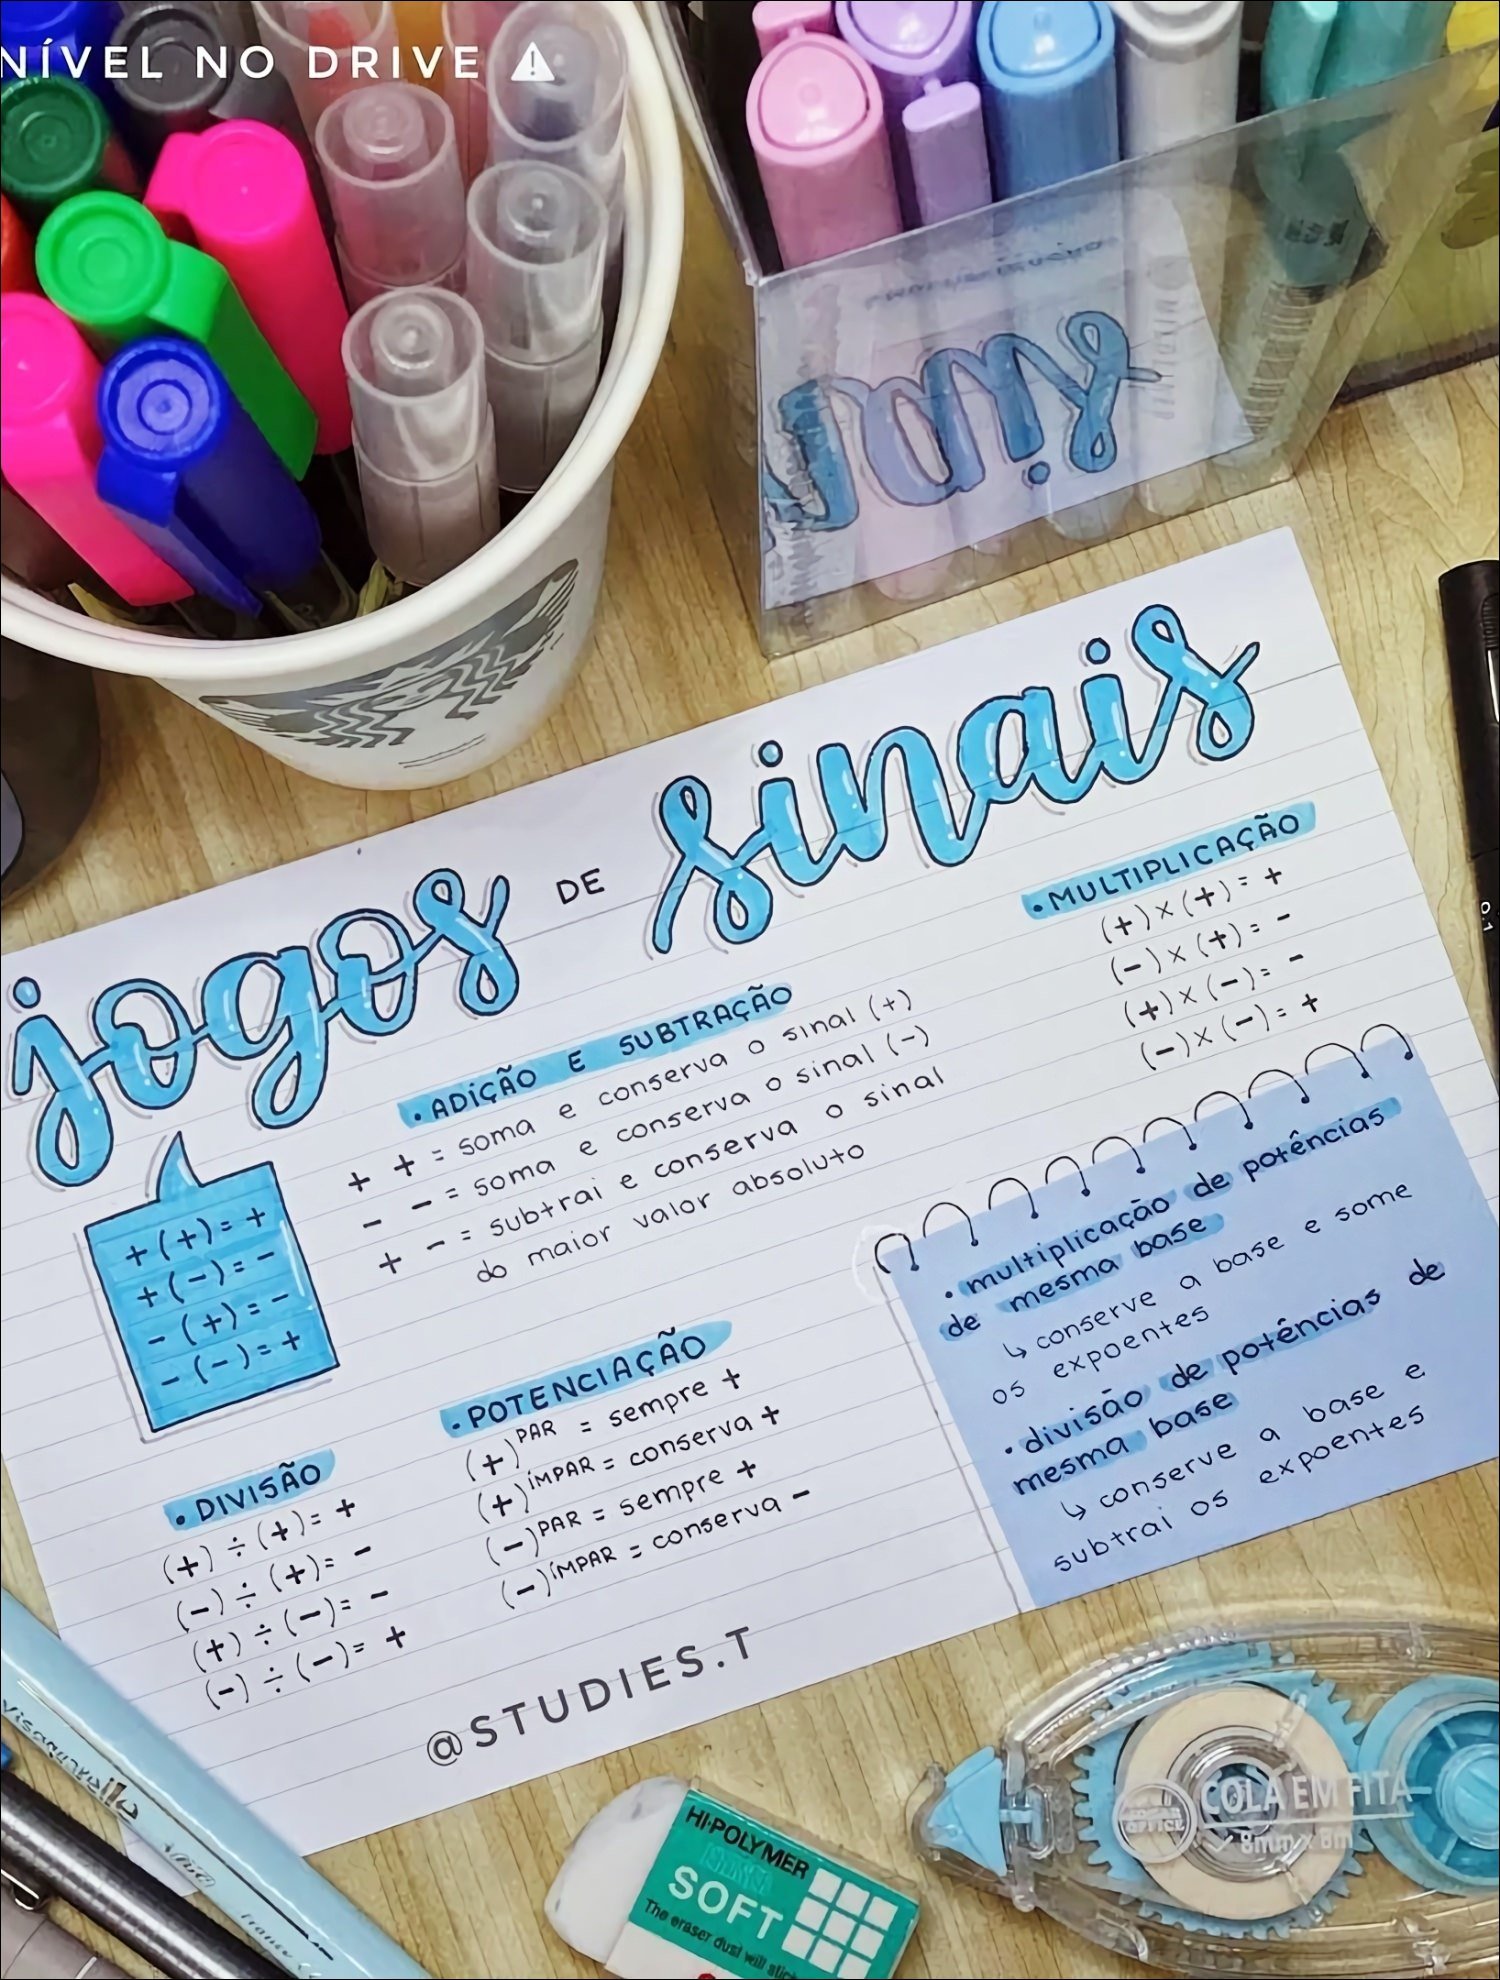 NÍVEL NO DRIVE ⚠
jogos DE sinais
• ADIÇÃO E SUBTRAÇÃO
+ + = soma e conserva o sinal (+)
- - = soma e conserva o sinal (-)
+ - = subtrai e conserva o sinal
do maior valor absoluto
• MULTIPLICAÇÃO
(+) × (+) = +
(-) × (+) = -
(+) × (-) = -
(-) × (-) = +
+ (+) = +
+ (-) = -
- (+) = -
- (-) = +
• DIVISÃO
(+) ÷ (+) = +
(-) ÷ (+) = -
(+) ÷ (-) = -
(-) ÷ (-) = +
• POTENCIAÇÃO
(+)^PAR = sempre +
(+)^ÍMPAR = conserva +
(-)^PAR = sempre +
(-)^ÍMPAR = conserva -
• multiplicação de potências
de mesma base
↳ conserve a base e some
os expoentes
• divisão de potências de
mesma base
↳ conserve a base e
subtrai os expoentes
@STUDIES.T
0.1
HI-POLYMER
SOFT
The eraser dust will
COLA EM FITA
8mm x 8m
OFFICE